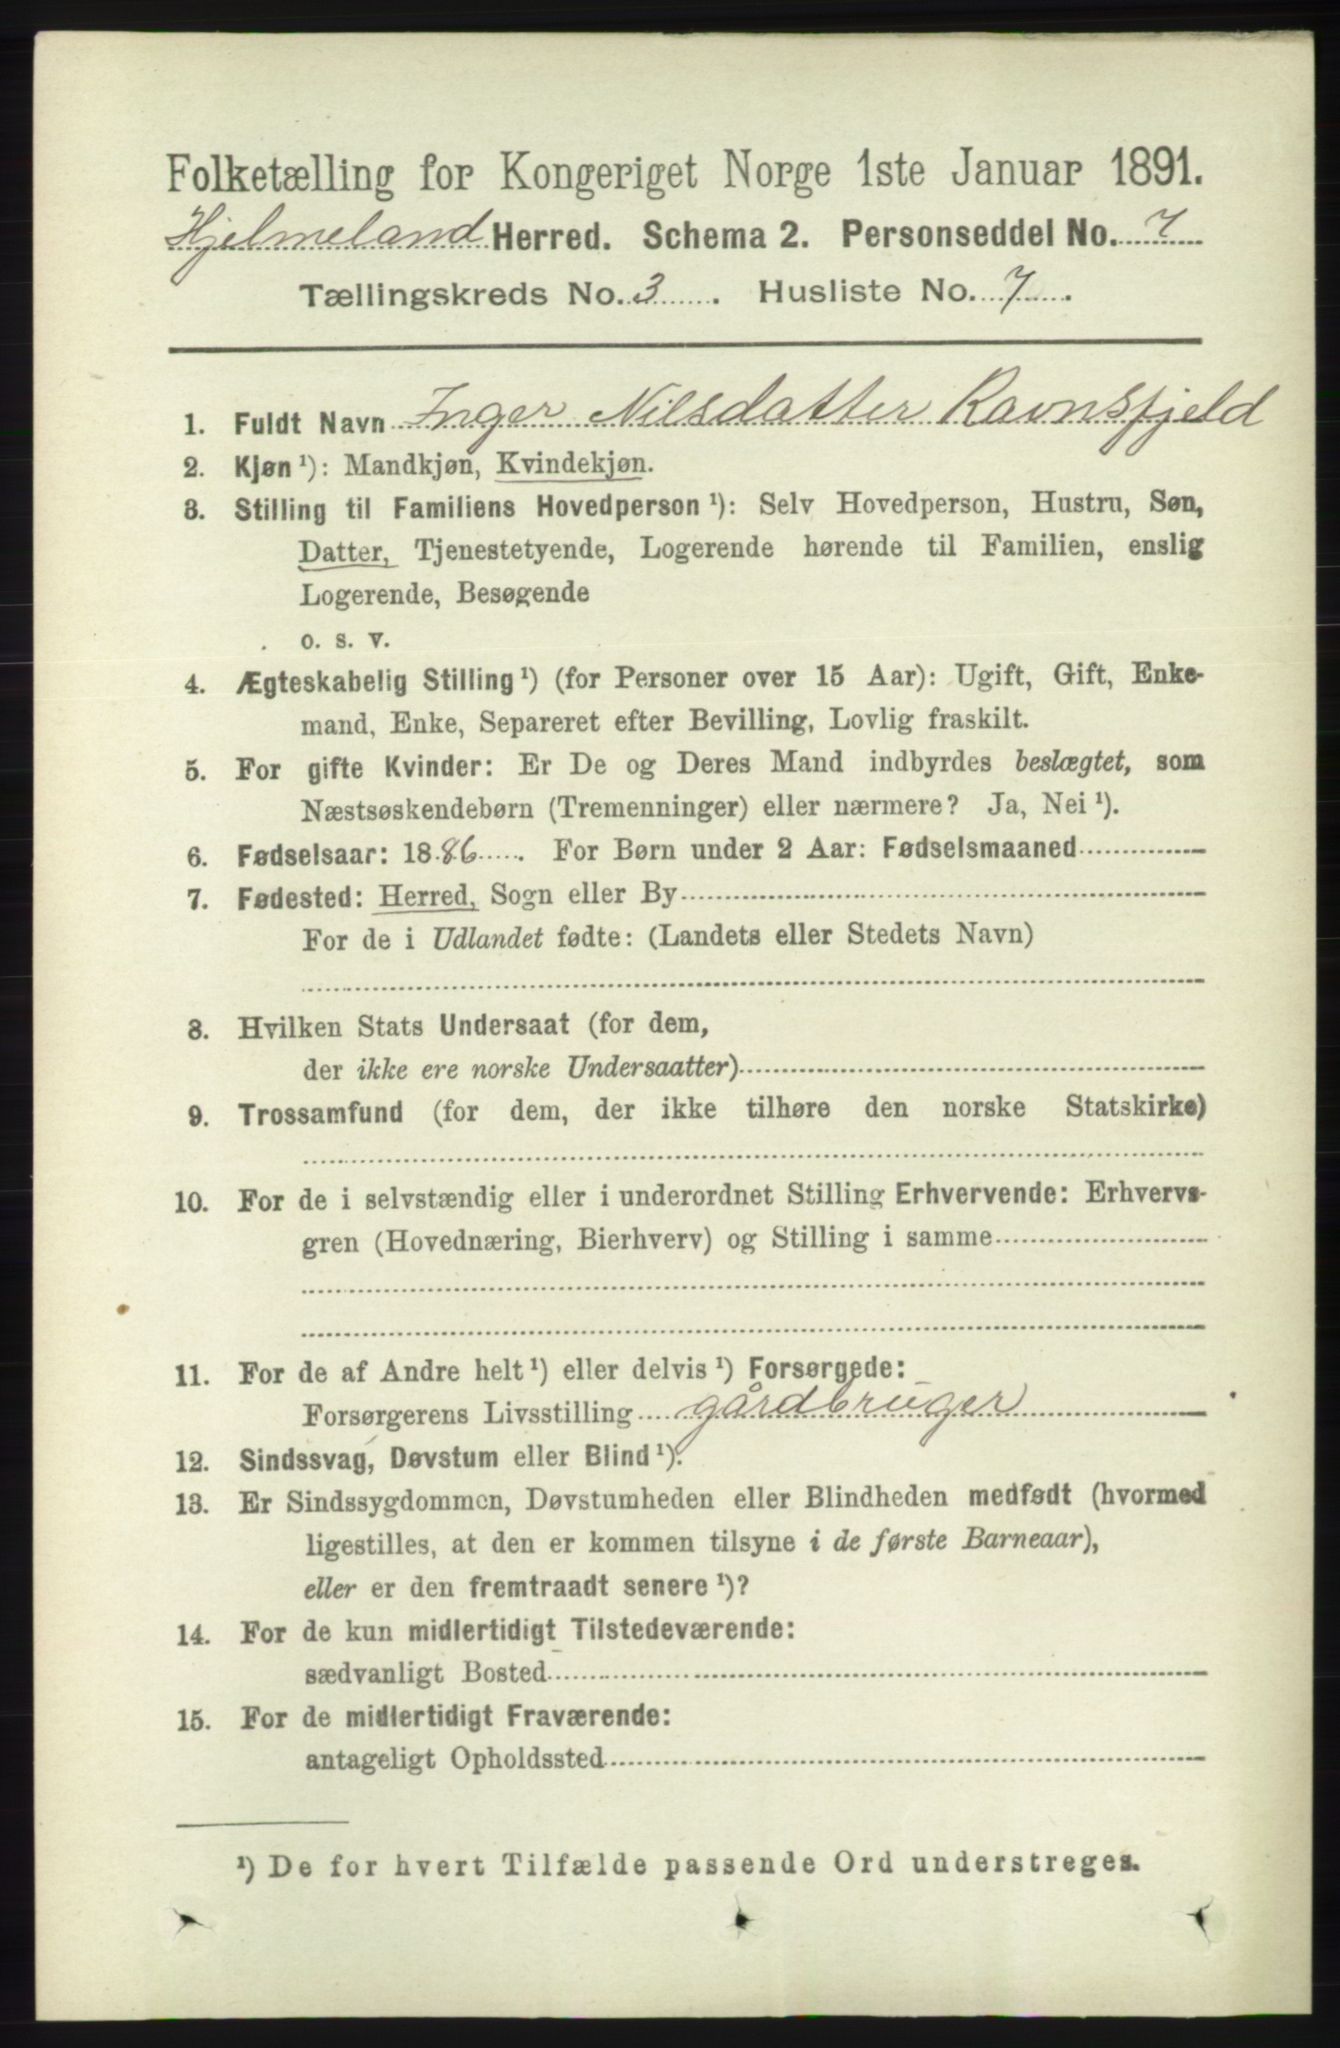 Folketælling for Kongeriget Norge 1ste Januar 1891.
Hjelmeland Herred. Schema 2. Personseddel No. 7
Tællingskreds No. 3 . Husliste No. 7 .
1. Fuldt Navn Inger Nilsdatter Ravnsfjeld
2. Kjøn ¹): Mandkjøn, Kvindekjøn.
3. Stilling til Familiens Hovedperson ¹): Selv Hovedperson, Hustru, Søn,
Datter, Tjenestetyende, Logerende hørende til Familien, enslig
Logerende, Besøgende
o. s. v.
4. Ægteskabelig Stilling ¹) (for Personer over 15 Aar): Ugift, Gift, Enke-
mand, Enke, Separeret efter Bevilling, Lovlig fraskilt.
5. For gifte Kvinder: Er De og Deres Mand indbyrdes beslægtet, som
Næstsøskendebørn (Tremenninger) eller nærmere? Ja, Nei ¹).
6. Fødselsaar: 1886 . For Børn under 2 Aar: Fødselsmaaned
7. Fødested: Herred, Sogn eller By
For de i Udlandet fødte: (Landets eller Stedets Navn)
8. Hvilken Stats Undersaat (for dem,
der ikke ere norske Undersaatter)
9. Trossamfund (for dem, der ikke tilhøre den norske Statskirke)
10. For de i selvstændig eller i underordnet Stilling Erhvervende: Erhvervs-
gren (Hovednæring, Bierhverv) og Stilling i samme
11. For de af Andre helt ¹) eller delvis ¹) Forsørgede:
Forsørgerens Livsstilling gårdbruger
12. Sindssvag, Døvstum eller Blind ¹).
13. Er Sindssygdommen, Døvstumheden eller Blindheden medfødt (hvormed
ligestilles, at den er kommen tilsyne i de første Barneaar),
eller er den fremtraadt senere ¹)?
14. For de kun midlertidigt Tilstedeværende:
sædvanligt Bosted
15. For de midlertidigt Fraværende:
antageligt Opholdssted
¹) De for hvert Tilfælde passende Ord understreges.